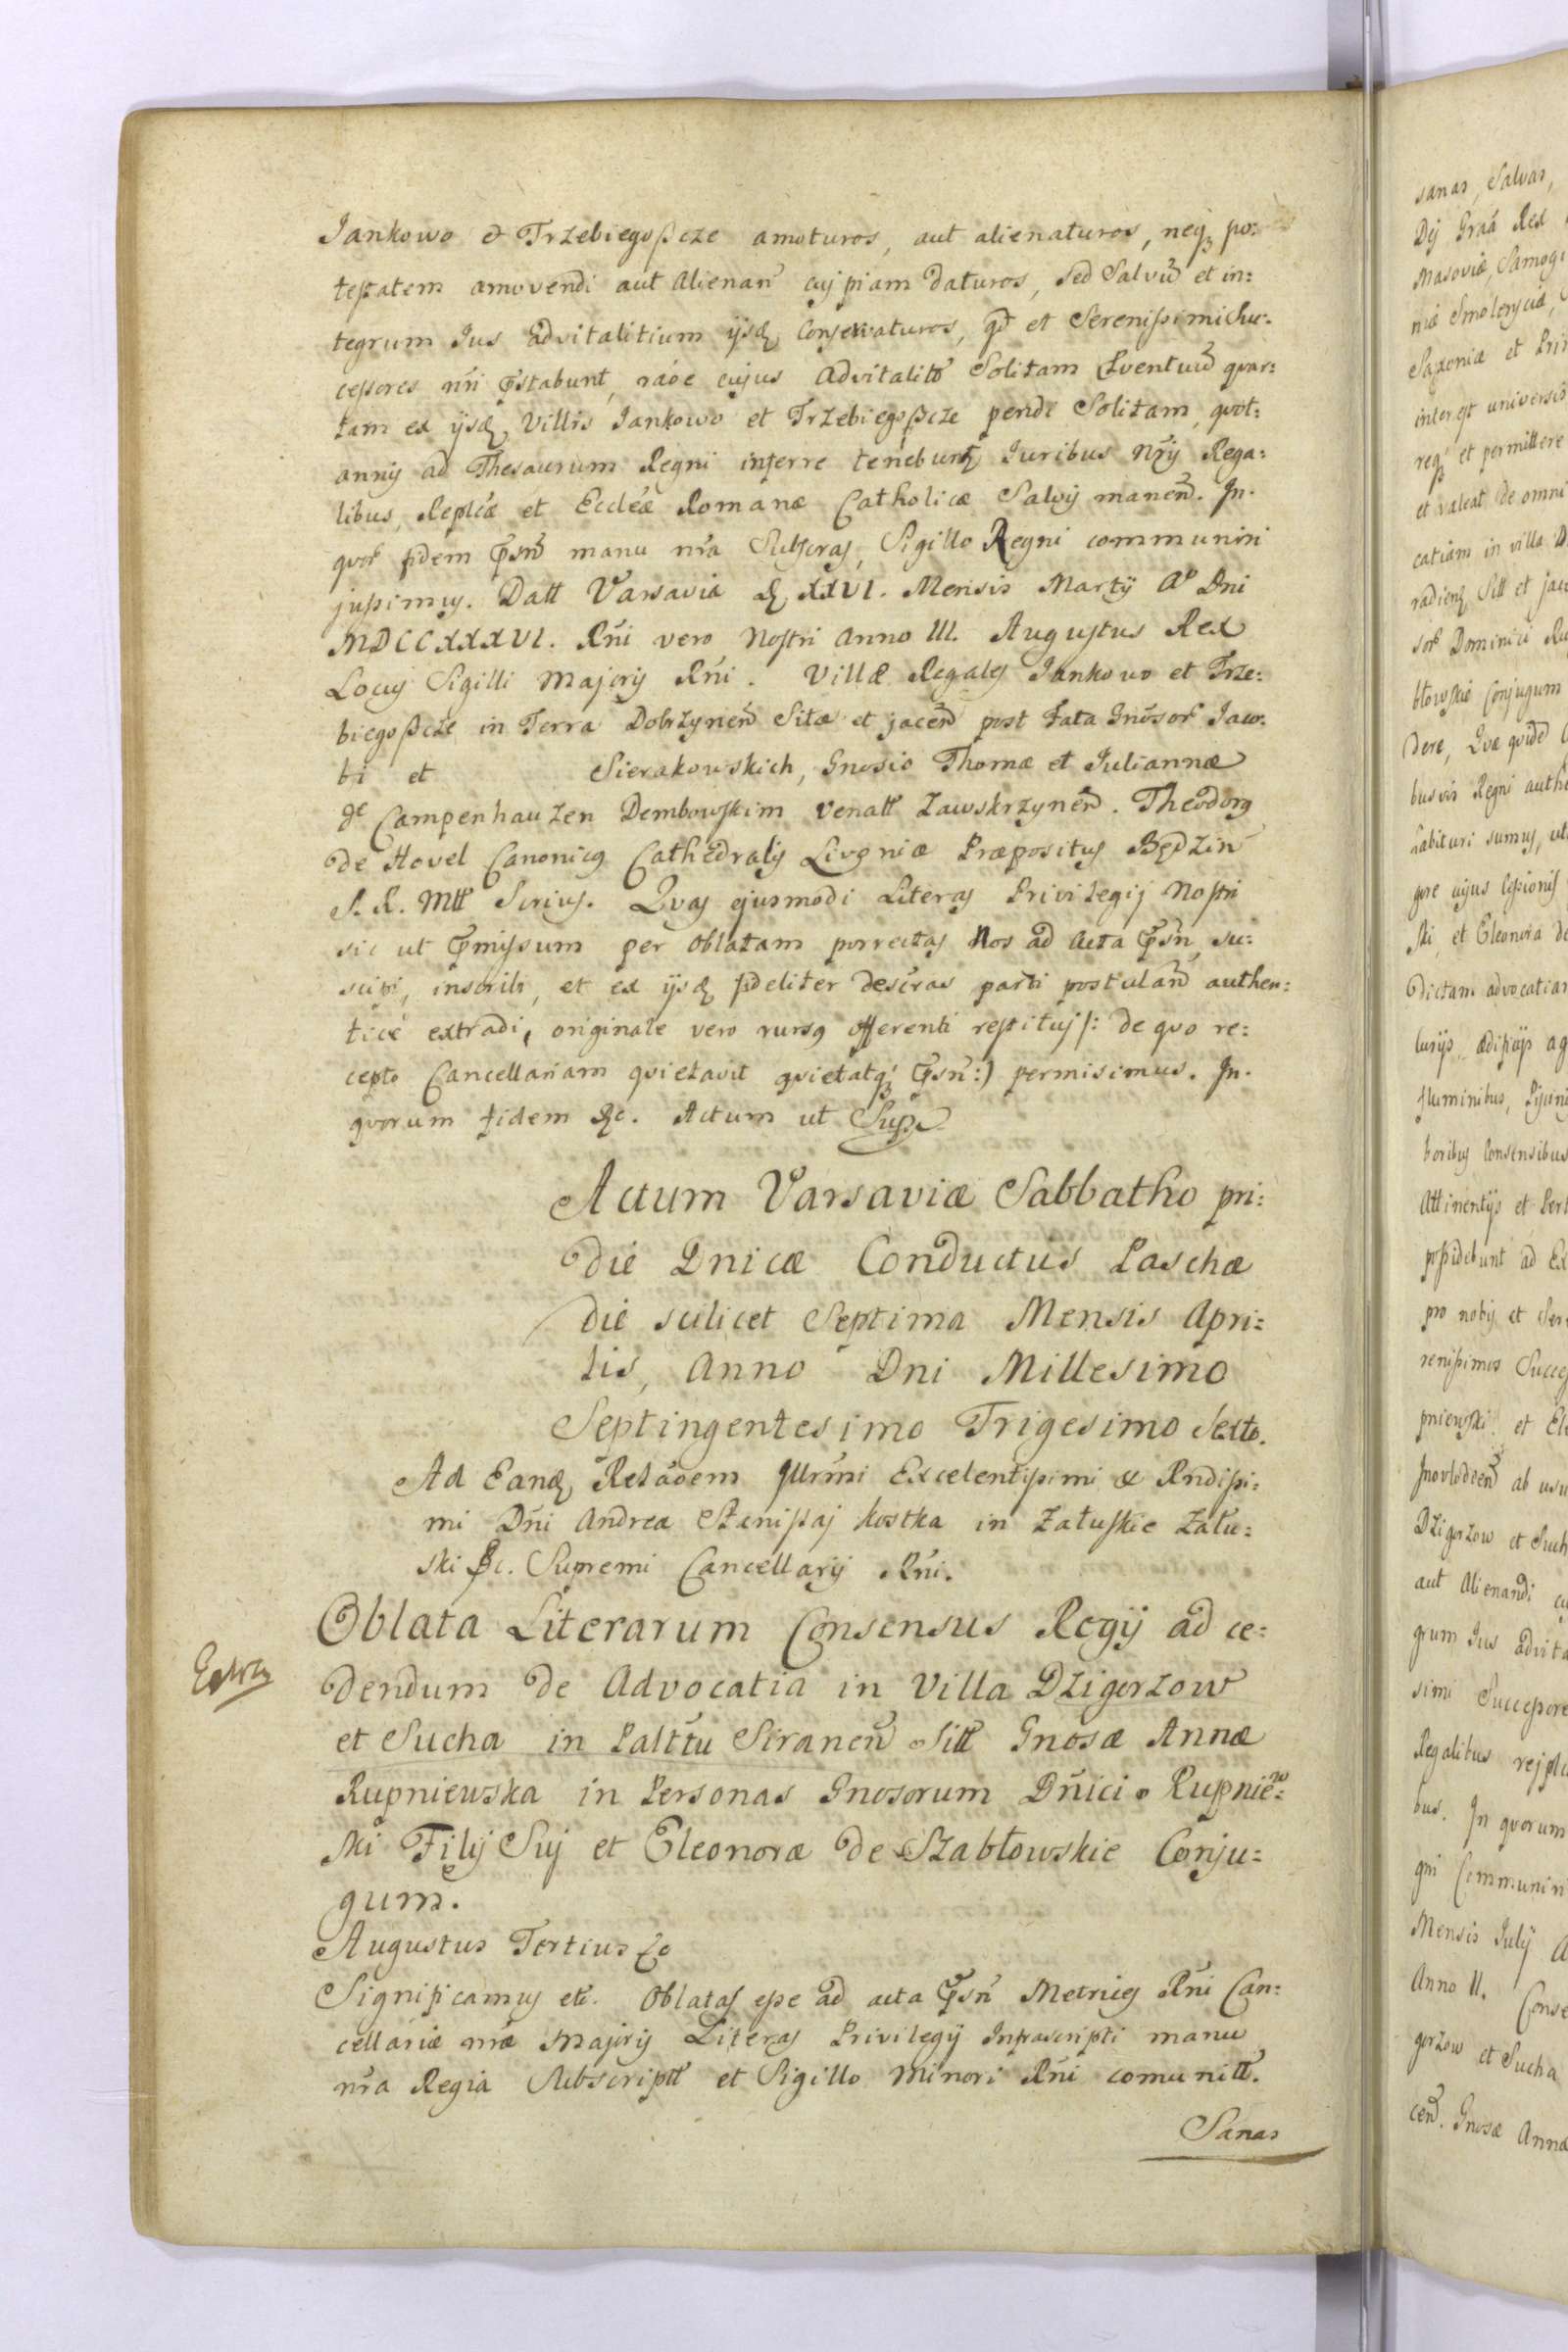 Jankowo & Trzebiegoszcze amoturos, aut alienaturos, neq₃ po:
testatem amovendi aut Alienan̄ cujpiam daturos, sed Salvū et in:
tegrum Jus advitalitium ijsd conservaturos, qd et Serenissimi Suc:
cessores nr̄i pr̄stabunt, raōe cujus Advitalit̄ Solitam Eventuū quar:
tam ex ijsd Villis Jankowo et Trzebiegoszcze pendi Solitam, quot:
annis ad Thesaurum Regni inferre tenebunt Juribus Nr̄is Rega:
libus, Replcæ et Ecclēæ Romanæ Catholicæ Salvis manen̄. In
quor fidem pr̄sn̄ manu nr̄a Subscras, Sigillo Regni communiri
jussimus. Datt Varsaviæ d XXVI. Mensis Martij Aº Dni
MDCCXXXVI. Rn̄i vero Nostri Anno III. Augustus Rex
Locus Sigilli Majoris Rn̄i. Villæ Regales Jankowo et Trze:
biegoszcze in Terra Dobrzynen̄ Sitæ et jacen̄ post fata Gn̄osor Jaco:
bi et Sierakowskich, Gnosis Thomæ et Juliannæ
de Campenhauzen Dembowskim Venatt Zawskrzynen̄. Theodorus
de Hovel Canonicus Cathedralis Livoniæ Præpositus Będzin̄
S. R. Mtt Scrius. Quas ejusmodi Literas Privilegij Nostri
sic ut pr̄missum per oblatam porrectas Nos ad Acta pr̄sn̄ su:
scipi, inscribi, et ex ijsd fideliter descras parti postulan̄ authen:
ticè extradi, originale vero rursus offerenti restitui /: de quo re:
cepto Cancellariam quietavit quietatq₃ pr̄sn̄ :) permisimus. In
quorum fidem &c. Actum ut Supr̄
Actum Varsaviæ Sabbatho pri:
die Dnicæ Conductus Paschæ
die scilicet Septima Mensis Apri:
lis, Anno Dni Millesimo
Septingentesimo Trigesimo Sexto.
Ad Eand Relāoem Jllrmi Excelentissimi & Rndissi:
mi Dn̄i Andreæ Stanislaj Kostka in Załuskie Zału:
ski &c. Supremi Cancellarij Rn̄i.
Oblata Literarum Consensus Regij ad ce:
dendum de Advocatia in Villa Dzigorzow
et Sucha in Palttu Siranen̄ Sitt Gnosæ Annæ
Rupniewska in Personas Gnosorum Dn̄ici Rupniew:
ski Filij Sui et Eleonoræ de Szabłowskie Conju:
gum.
Augustus Tertius &c
Significamus etc. Oblatas esse ad acta pr̄sn̄ Metrices Rn̄i Can:
cellariæ nr̄æ Majoris Literas Privilegij Infrascripti manu
nr̄a Regia Subscriptt et Sigillo Minori Rn̄i comunitt.
Sanas
sanas, Salvas,
Dej Graā Rex
Masoviæ, Samogi
niæ Smolensciæ,
Saxoniæ et Prin
interest universis
req₃ et permittere
et valeat de omni
catiam in villa D
radien Sitt et jac
sor Dominici Ru
błowskie Conjugum
dere, Quæ quidē
busvis Regni auth
habituri sumus, ut
pore cujus cessionis
ski, et Eleonora de
dictam advocatiam
lurijs, ædificijs ag
fluminibus, Piscin
boribus Consensibus
Attinentijs et Pert
possidebunt ad Ex
pro nobis et Ser
renissimos Success
pniewski et El
Inovlodzen̄ ab usu
Dzigorzow et Such
aut Alienandi cu
grum Jus advita
simi Successore
Regalibus reiplc
bus. In quorum
gni Communiri
Mensis Julij A
Anno II. Conse
gorzow et Sucha
cen̄. Gnosæ Annæ